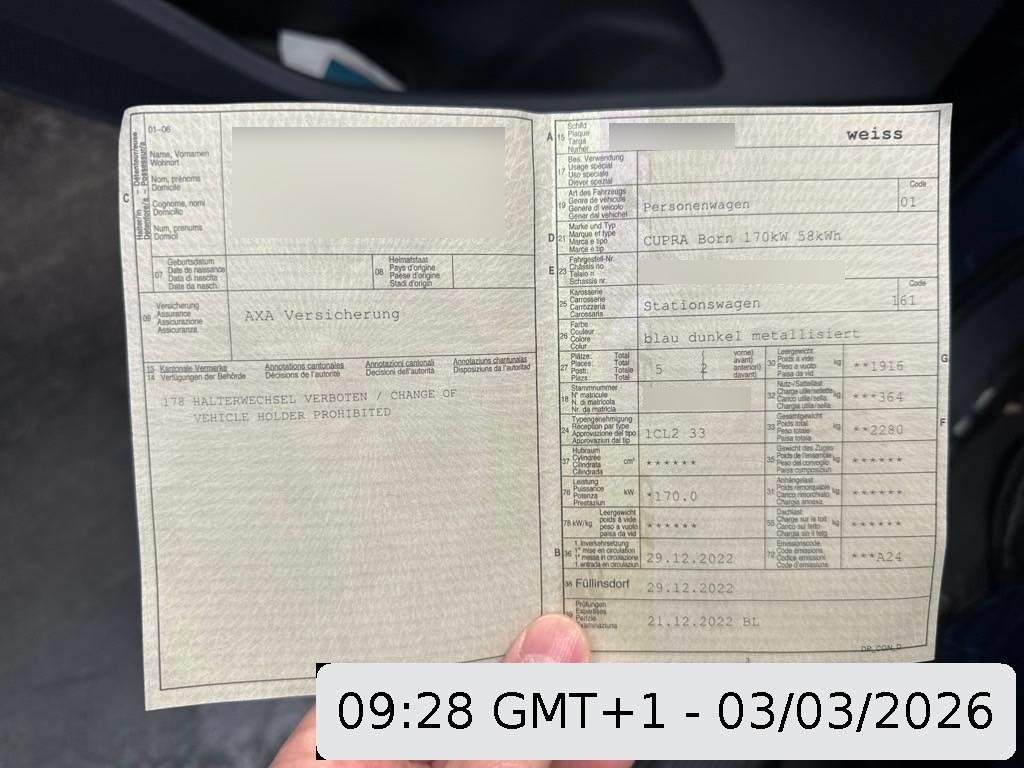 01-06
Halter/in - Détenteur/euse
Detentore/a - Possessur/a
C
Name, Vornamen
Wohnort
Nom, prénoms
Domicile
Cognome, nomi
Domicilio
Num, prenums
Domicil
07
Geburtsdatum
Date de naissance
Data di nascita
Data da nasch.
08
Heimatstaat
Pays d'origine
Paese d'origine
Stadi d'origin
09
Versicherung
Assurance
Assicurazione
Assicuranza
AXA Versicherung
13 Kantonale Vermerke
14 Verfügungen der Behörde
Annotations cantonales
Décisions de l'autorité
Annotazioni cantonali
Decisioni dell'autorità
Annotaziuns chantunalas
Disposiziuns da l'autoritad
178 HALTERWECHSEL VERBOTEN / CHANGE OF
VEHICLE HOLDER PROHIBITED
A 15
Schild
Plaque
Targa
Numer
weiss
17
Bes. Verwendung
Usage spécial
Uso speciale
Diever spezial
19
Art des Fahrzeugs
Genre de véhicule
Genere di veicolo
Gener dal vehichel
Personenwagen
Code
01
D 21
Marke und Typ
Marque et type
Marca e tipo
Marca e tip
CUPRA Born 170kW 58kWh
E 23
Fahrgestell-Nr.
Châssis no
Telaio n.
Schassis nr.
25
Karosserie
Carrosserie
Carrozzeria
Carossaria
Stationswagen
Code
161
26
Farbe
Couleur
Colore
Colur
blau dunkel metallisiert
27
Plätze: Total
Places: Total
Posti: Totale
Plazs: Total
5
( vorne)
( avant)
anteriori)
davant)
2
30
Leergewicht
Poids à vide
Peso a vuoto
Paisa da vid
kg
**1916
G
18
Stammnummer
N° matricule
N. di matricola
Nr. da matricla
32
Nutz-/Sattellast
Charge utile/sellette
Carico utile/sella
Chargia utila/sella
kg
***364
24
Typengenehmigung
Réception par type
Approvazione del tipo
Approvaziun dal tip
1CL2 33
33
Gesamtgewicht
Poids total
Peso totale
Paisa totala
kg
**2280
F
37
Hubraum
Cylindrée
Cilindrata
Cilindrada
cm³
******
35
Gewicht des Zuges
Poids de l'ensemble
Peso del convoglio
Paisa cumposiziun
kg
******
76
Leistung
Puissance
Potenza
Prestaziun
kW
*170.0
31
Anhängelast
Poids remorquable
Carico rimorchiabile
Chargia annexa
kg
******
78 kW/kg
Leergewicht
poids à vide
peso a vuoto
paisa da vid
******
55
Dachlast
Charge sur le toit
Carico sul tetto
Chargia sin il tetg
kg
******
B 36
1. Inverkehrsetzung
1re mise en circulation
1a messa in circolazione
1. entrada en circulaziun
29.12.2022
72
Emissionscode
Code émissions
Codice emissioni
Code d'emissiuns
***A24
38 Füllinsdorf
29.12.2022
39
Prüfungen
Expertises
Perizie
Examinaziuns
21.12.2022 BL
09:28 GMT+1 - 03/03/2026